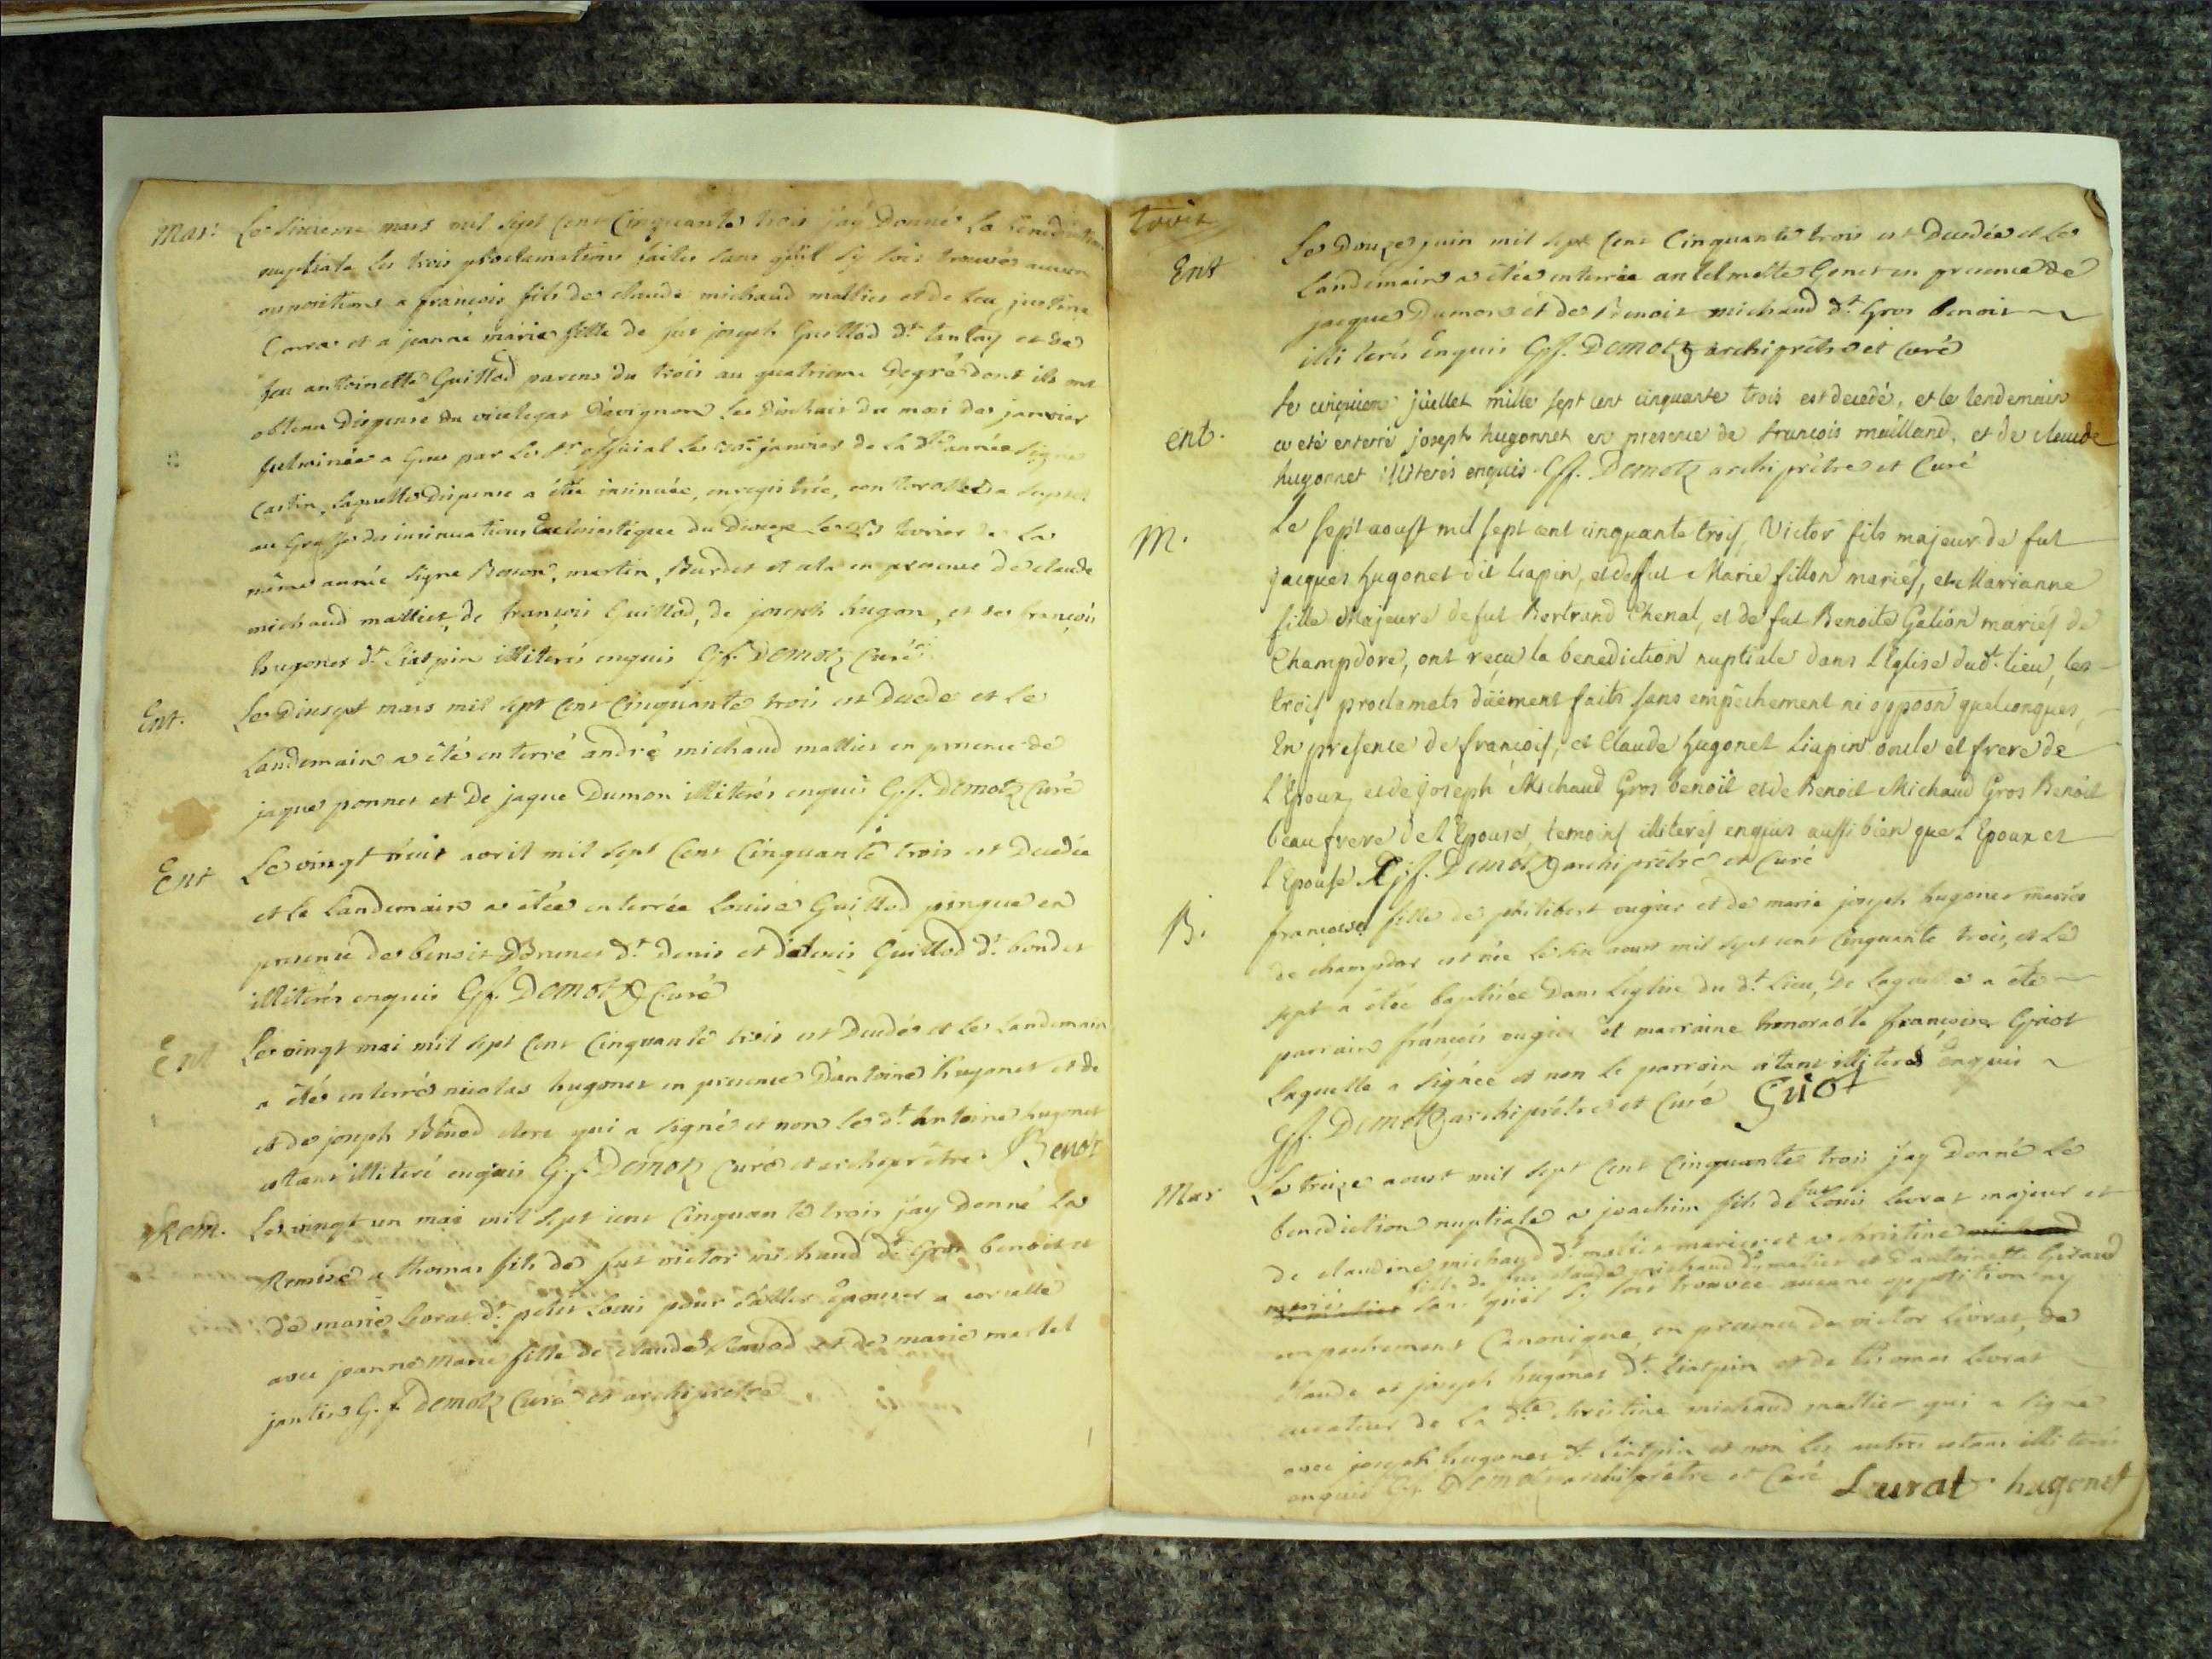 Mar: Le sixieme mars mil sept cent Cinquante trois j'ay Donné La benediction
nuptiale les trois proclamations faites sans qu'il sy soit trouvée aucune
oppositions a françois fils de claude michaud mattier et de feu justine
et a jeanne marie fille de fut joseph Guillod dt. tantay et de
feu antoinette Guillod parens du trois au quatrieme Degré dont ils ont
obtenu Dispense du vicelegat D'avignon Le du mois de janvier
fulminée a par Le Sr. official Le janvier de La dte. année signé
Laquelle Dispense a étée insinuée, enregistrée, controllée
au Greffe des insinuations Ecclesiastique du Dioceze Le fevrier de La
même année signé martin, et cela en presence de claude
michaud mattier, de françois Guillod, de joseph hugon, et de françois
hugonet dt. Liatpin illiterés enquis G.f. Demotz Curé
Ent. Le Dixsept mars mil sept Cent Cinquante trois est Decedé et Le
Landemain a été enterré andré michaud mattier en presence de
jaque ponnet et De jaque Dumon illiterés enquis G.f. Demotz Curé
Ent Le vingt huit avril mil sept Cent Cinquante trois est Decedée
et le Landemain a étée enterrée Louise Guillod pingue en
presence de benoit Brunet dt. Denis et de Louis Guillod dt. bondet
illiterés enquis G.f. Demotz Curé
Ent Le vingt mai mil sept Cent Cinquante trois est Decedé et Le Landemain
a été enterré nicolas hugonet en presence D'antoine hugonet et de
et de joseph Benod clerc qui a signé et non Le dt. antoine hugonet
estant illiteré enquis G.f. Demotz Curé et archiprêtre Benot
Rem. Le vingt un mai mil sept cent Cinquante trois j'ay Donné La
Remise a thomas fils de fut victor michaud dt. Gros benoit et
de marie Livrat dt. petit Louis pour d'aller épouser a corcelle
avec jeanne Marie fille de claude Ravod et de marie martel
jantin G.f. Demotz Curé et archiprêtre
trois
Ent Le Douze juin mil sept Cent Cinquante trois est Decedée et Le
Landemain a étée enterrée antelmette Genet en presence de
jacque Dumon et de Benoit michaud dt. Gros benoit
illiterés enquis G.f. Demotz archiprêtre et Curé
ent. Le cinquiem juillet mille sept cent cinquante trois est decedé, et le lendemain
a eté enterré joseph hugonnet en presence de françois mailland, et de claude
hugonnet illiterés enquis. G.f. Demotz archiprêtre et Curé
M. Le sept aoust mil sept cent cinquante trois, Victor fils majeur de fut
Jacques hugonet dit Liapin, et de fut Marie fillon mariés, et Marianne
fille Majeure de fut Bertrand Chenal, et de fut Benoite Gelion mariés de
Champdore, ont reçu la benediction nuptiale dans l'Eglise dudt. lieu, les
trois proclamats düement faits sans empêchement ni opposn quelconques,
En presence de françois, et Claude hugonet Liapin oncle et frere de
l'Epoux, et de joseph Michaud Gros benoit et de Benoit Michaud Gros Benoit
beau frere de l'Epouse, temoins illiterés enquis aussi bien que l'Epoux et
l'Epouse G.f. Demotz archiprêtre et Curé
B. françoise fille de philibert ougier et de marie joseph hugonet mariés
de champdor est née Le six aoust mil sept cent Cinquante trois, et Le
sept a étée baptisée Dans L'eglise du dt. Lieu, De Laquelle a été
parrain françois ougier et marraine honorable françoise Griot
Laquelle a signée et non le parrain estant illiteré Enquis
G.f. Demotz archiprêtre et Curé Griot
Mar Le treize aoust mil sept Cent Cinquante trois j'ay Donné Le
benediction nuptiale a joachim fils de fut Louis Livrat majeur et
De claudine michaud dt. mattier mariés et a christine michaud
fille de fut claude michaud dt. matier et d'antoinette Giraud
mariés sans qu'il sy soit trouvée aucune opposition ny
empechement Canonique, en presence de victor Livrat, de
claude et joseph hugonet dt. Liatpin et de thomas Livrat
curateur de La dte. christine michaud mattier qui a signé
avec joseph hugonet dt. Liatpin et non les autres estans illiterés
enquis G.f. Demotz archiprêtre et Curé Livrat hugonet